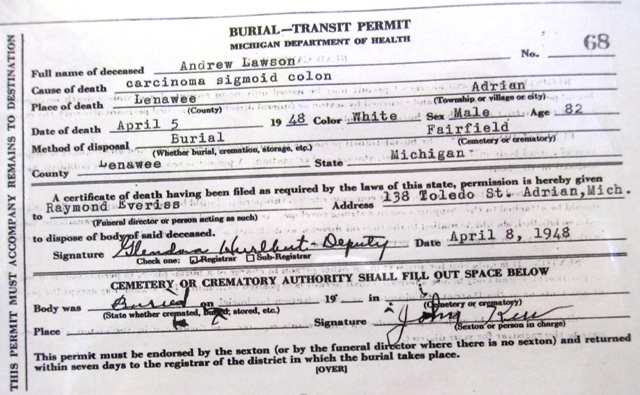 BURIAL—TRANSIT PERMIT
MICHIGAN DEPARTMENT OF HEALTH
No. 68
Full name of deceased Andrew Lawson
Cause of death carcinoma sigmoid colon
Place of death Lenawee Adrian
(County) (Township or village or city)
Date of death April 5 1948 Color White Sex Male Age 82
Method of disposal Burial Fairfield
(Whether burial, cremation, storage, etc.) (Cemetery or crematory)
County Lenawee State Michigan
A certificate of death having been filed as required by the laws of this state, permission is hereby given
to Raymond Everiss Address 138 Toledo St. Adrian,Mich.
(Funeral director or person acting as such)
to dispose of body of said deceased.
Signature Glendora Hurlbut-Deputy Date April 8, 1948
Check one: Registrar Sub-Registrar
CEMETERY OR CREMATORY AUTHORITY SHALL FILL OUT SPACE BELOW
Body was Buried on 19 in
(State whether cremated, buried, stored, etc.) (Cemetery or crematory)
Place Signature John
(Sexton or person in charge)
This permit must be endorsed by the sexton (or by the funeral director where there is no sexton) and returned
within seven days to the registrar of the district in which the burial takes place.
[OVER]
THIS PERMIT MUST ACCOMPANY REMAINS TO DESTINATION